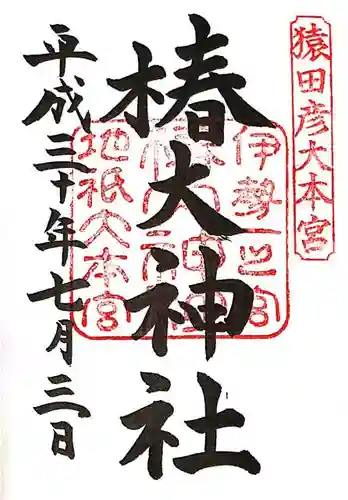 猿田彦大本宮
伊勢一之宮
椿大神社
地祇大本宮
平成三十年七月三日